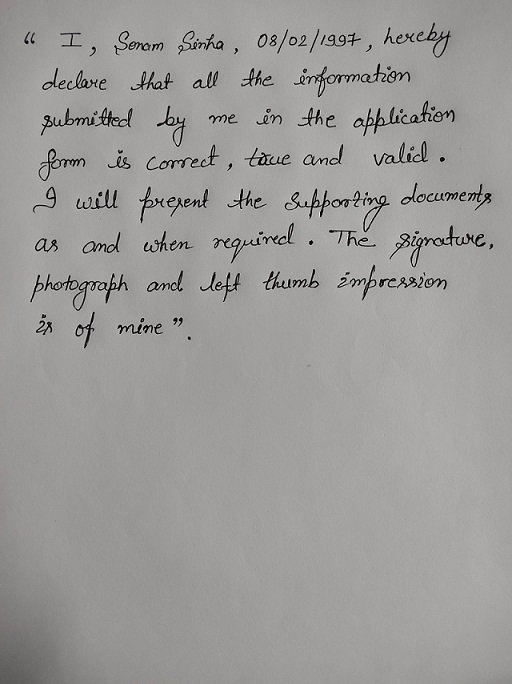 “ I, Sonam Sinha, 08/02/1997, hereby
declare that all the information
submitted by me in the application
form is correct, true and valid.
I will present the supporting documents
as and when required. The signature,
photograph and left thumb impression
is of mine”.